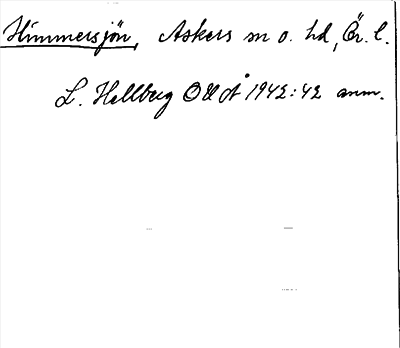 Himmersjön, Askers sn o. hd, Ör. l.
L. Hellberg OUÅ 1942:42 anm.